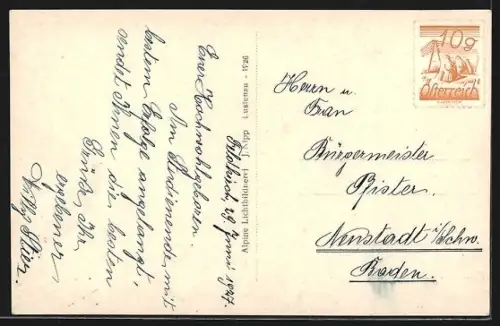 Feldkirch, 29. Juni 1927.
Euer Hochwohlgeboren.
Am Studienende, mit
bestem Erfolge angelangt,
sendet Ihnen die besten
Grüße, Ihr
ergebener
Willy
Alpine Lichtbildnerei J. Lustenau - 1926
10g
Österreich
Herrn u.
Frau
Bürgermeister
Pister.
Neustadt i/Schw.
Baden.